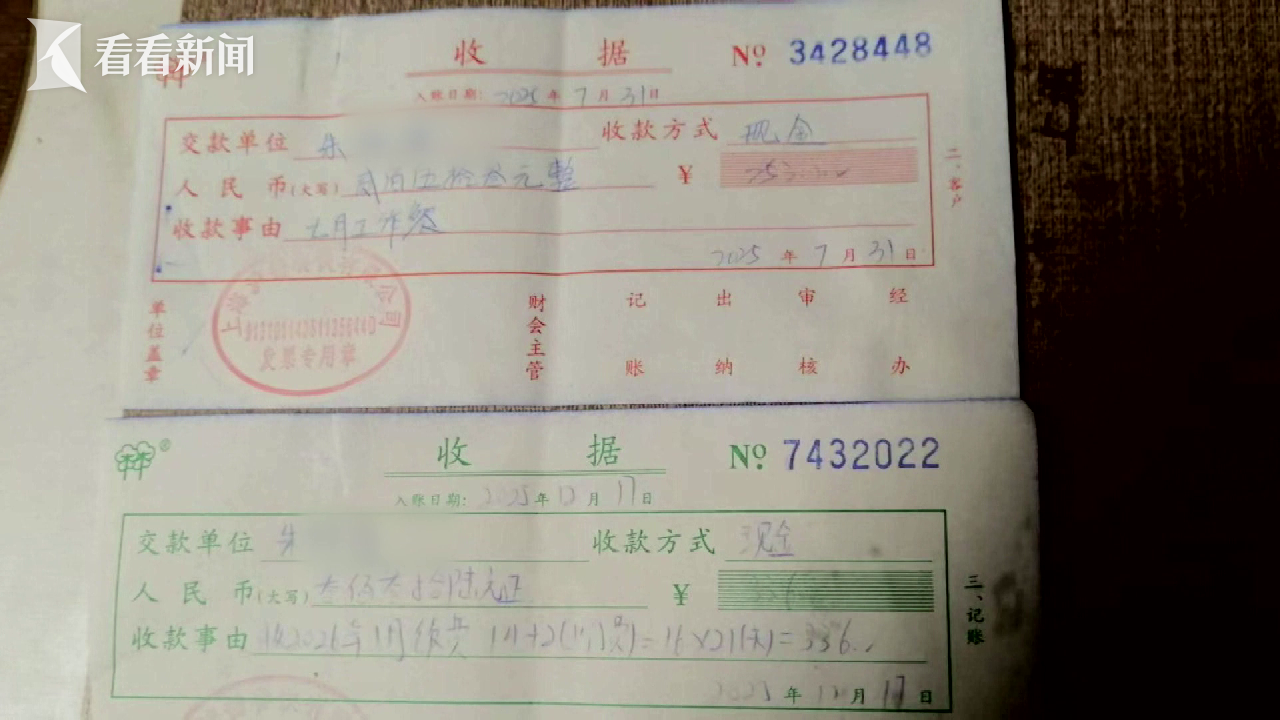 看看新闻
收 据 № 3428448
入账日期: 2025 年 7 月 31 日
交款单位 朱 收款方式 现金
人民币(大写) 贰佰伍拾叁元整 ¥ 253.00
收款事由 七月工作餐
2025 年 7 月 31 日
单位盖章 财会主管 记账 出纳 审核 经办
二、客户
上海 公司
发票专用章
收 据 № 7432022
入账日期: 2025 年 12 月 17 日
交款单位 朱 收款方式 现金
人民币(大写) 叁佰叁拾陆元正 ¥ 336
收款事由 收2026年1月 14+2( )=16×21(天)=336.
2025 年 12 月 17 日
三、记账